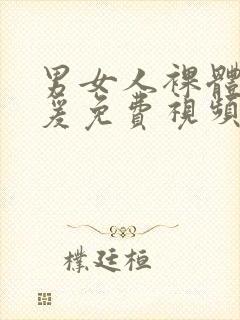 男女人裸體
爰免費視頻
樸廷桓